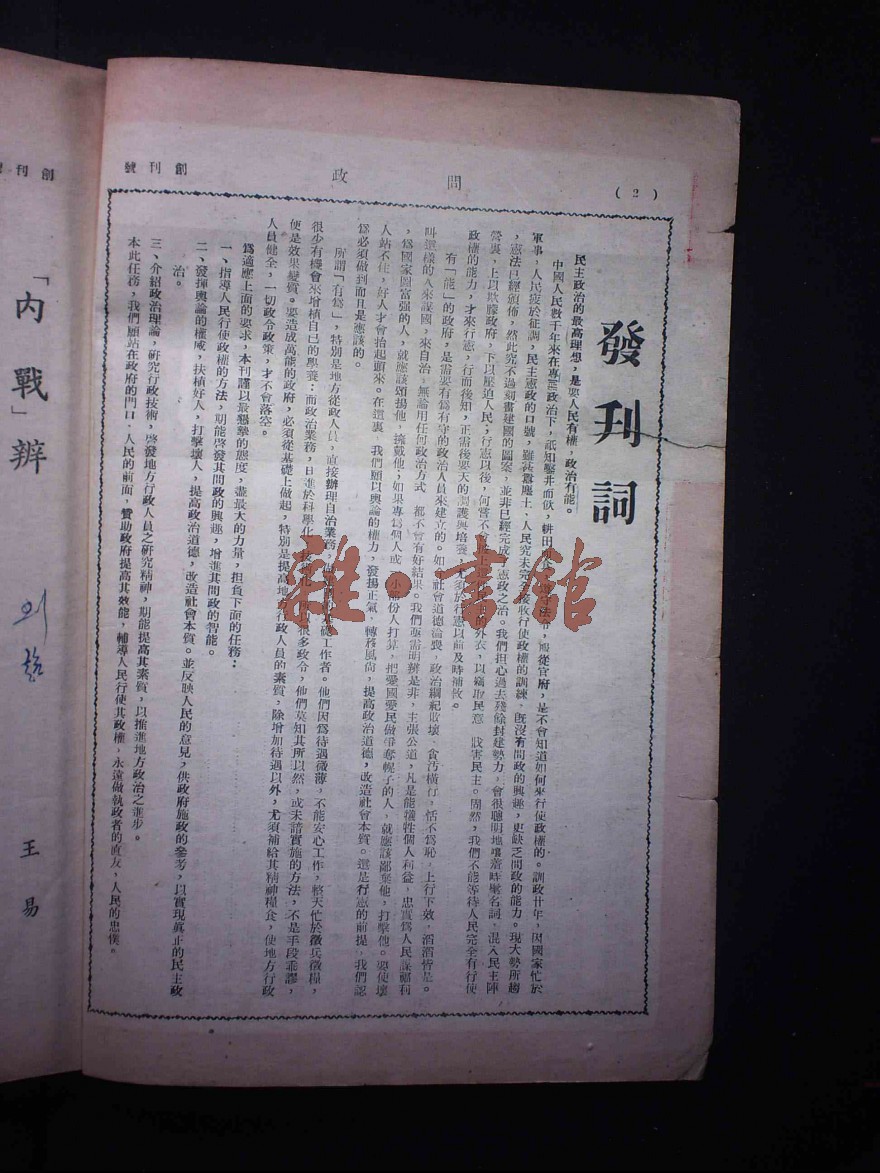 (2)
問政
創刊號
發刊詞
民主政治的最高理想，是要人民有權，政治有能。
中國人民數千年來在專制政治下，祇知鑿井而飲，耕田而食，順從官府，是不會知道如何來行使政權的。訓政廿年，因國家忙於
軍事，人民疲於征調，民主憲政的口號，雖甚囂塵上，人民究未完全接收行使政權的訓練，既沒有問政的興趣，更缺乏問政的能力。現大勢所趨
，憲法已經頒佈，然此究不過刻畫建國的圖案，並非已經完成了憲政之治。我們担心過去殘餘封建勢力，會很聰明地嚷着時髦名詞，混入民主陣
營裏，上以欺矇政府，下以壓迫人民；行憲以後，何嘗不會的外衣，以竊取民意，戕害民主。固然，我們不能等待人民完全有行使
政權的能力，才來行憲，行而後知，正需後天的調護與培養，尤須於行憲以前及時補救。
有「能」的政府，是需要有爲有守的政治人員來建立的。如今社會道德淪喪，政治綱紀敗壞，貪汚橫行，恬不爲恥，上行下效，滔滔皆是。
叫這樣的人來謀國，來自治，無論用任何政治方式，都不會有好結果。我們要需明辨是非，主張公道，凡是能犧牲個人利益，忠實爲人民謀福利
，爲國家圖富強的人，就應該頌揚他，擁戴他；如果專爲個人或一小部份人打算，把愛國愛民做爭奪幌子的人，就應該鄙棄他，打擊他。要使壞
人站不住，好人才會抬起頭來。在這裏，我們願以輿論的權力，發揚正氣，轉移風尙，提高政治道德，改造社會本質。這是行憲的前提，我們認
爲必須做到而且是應該的。
所謂「有爲」，特別是地方從政人員，直接辦理自治業務，工作者。他們因爲待遇微薄，不能安心工作，整天忙於徵兵徵糧，
很少有機會來增植自己的學養；而政治業務，日進於科學化，很多政令，他們莫知其所以然，或未諳實施的方法，不是手段乖謬，
便是效果變質。要造成萬能的政府，必須從基礎上做起，特別是提高地方行政人員的素質，除增加待遇以外，尤須補給其精神糧食，使地方行政
人員健全，一切政令政策，才不會落空。
爲適應上面的要求，本刊謹以最懇摯的態度，盡最大的力量，担負下面的任務：
一、指導人民行使政權的方法，期能啓發其問政的興趣，增進其問政的智能。
二、發揮輿論的權威，扶植好人，打擊壞人，提高政治道德，改造社會本質。並反映人民的意見，供政府施政的參考，以實現眞正的民主政
治。
三、介紹政治理論，研究行政技術，啓發地方行政人員之研究精神，期能提高其素質，以推進地方政治之進步。
本此任務，我們願站在政府的門口，人民的前面，贊助政府提高其效能，輔導人民行使其政權，永遠做執政者的直友，人民的忠僕。
創刊
「內戰」辨
王易
雜·書館